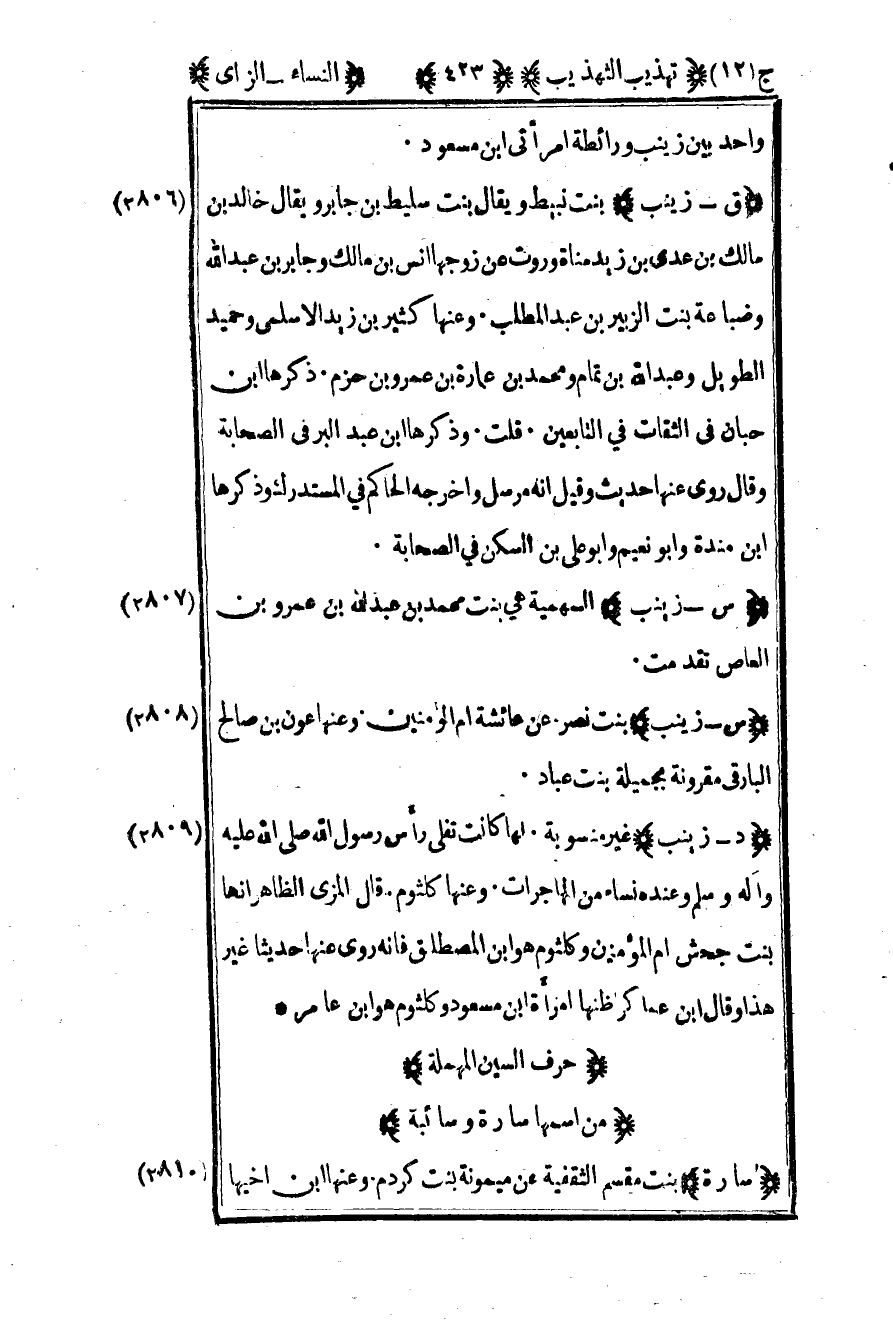 ج (١٢) ﴿ تهذيب التهذيب ﴾ ﴿ ٤٢٣ ﴾ ﴿ النساء ـ الزاى ﴾
واحد بين زينب ورائطة امرأتى ابن مسعود ٠
﴿ ق ـ زينب ﴾ بنت نبيط ويقال بنت سليط بن جابر ويقال خالد بن (٢٨٠٦)
مالك بن عدى بن زيد مناة وروت عن زوجها انس بن مالك وجابر بن عبد الله
وضباعة بنت الزبير بن عبد المطلب ٠ وعنها كثير بن زيد الاسلمى وحميد
الطويل وعبد الله بن تمام ومحمد بن عمارة بن عمرو بن حزم ٠ ذكرها ابن
حبان فى الثقات في التابعين ٠ قلت ٠ وذكرها ابن عبد البر فى الصحابة
وقال روى عنها حديث وقيل انه مرسل واخرجه الحاكم في المستدرك وذكرها
ابن مندة وابو نعيم وابو على بن السكن في الصحابة ٠
﴿ س ـ زينب ﴾ السهمية هي بنت محمد بن عبد الله بن عمرو بن (٢٨٠٧)
العاص تقدمت ٠
﴿ س ـ زينب ﴾ بنت نصر ٠ عن عائشة ام المؤمنين ٠ وعنها عون بن صالح (٢٨٠٨)
البارقى مقرونة بجميلة بنت عباد ٠
﴿ د ـ زينب ﴾ غير منسوبة ٠ انها كانت تفلى رأس رسول الله صلى الله عليه (٢٨٠٩)
وآله وسلم وعنده نساء من المهاجرات ٠ وعنها كلثوم ٠ قال المزى الظاهر انها
بنت جحش ام المؤمنين وكلثوم هو ابن المصطلق فانه روى عنها حديثا غير
هذا وقال ابن عساكر اظنها امرأة ابن مسعود وكلثوم هو ابن عامر •
﴿ حرف السين المهملة ﴾
﴿ من اسمها سارة وسائبة ﴾
﴿ سارة ﴾ بنت مقسم الثقفية عن ميمونة بنت كردم ٠ وعنها ابن اخيها (٢٨١٠)